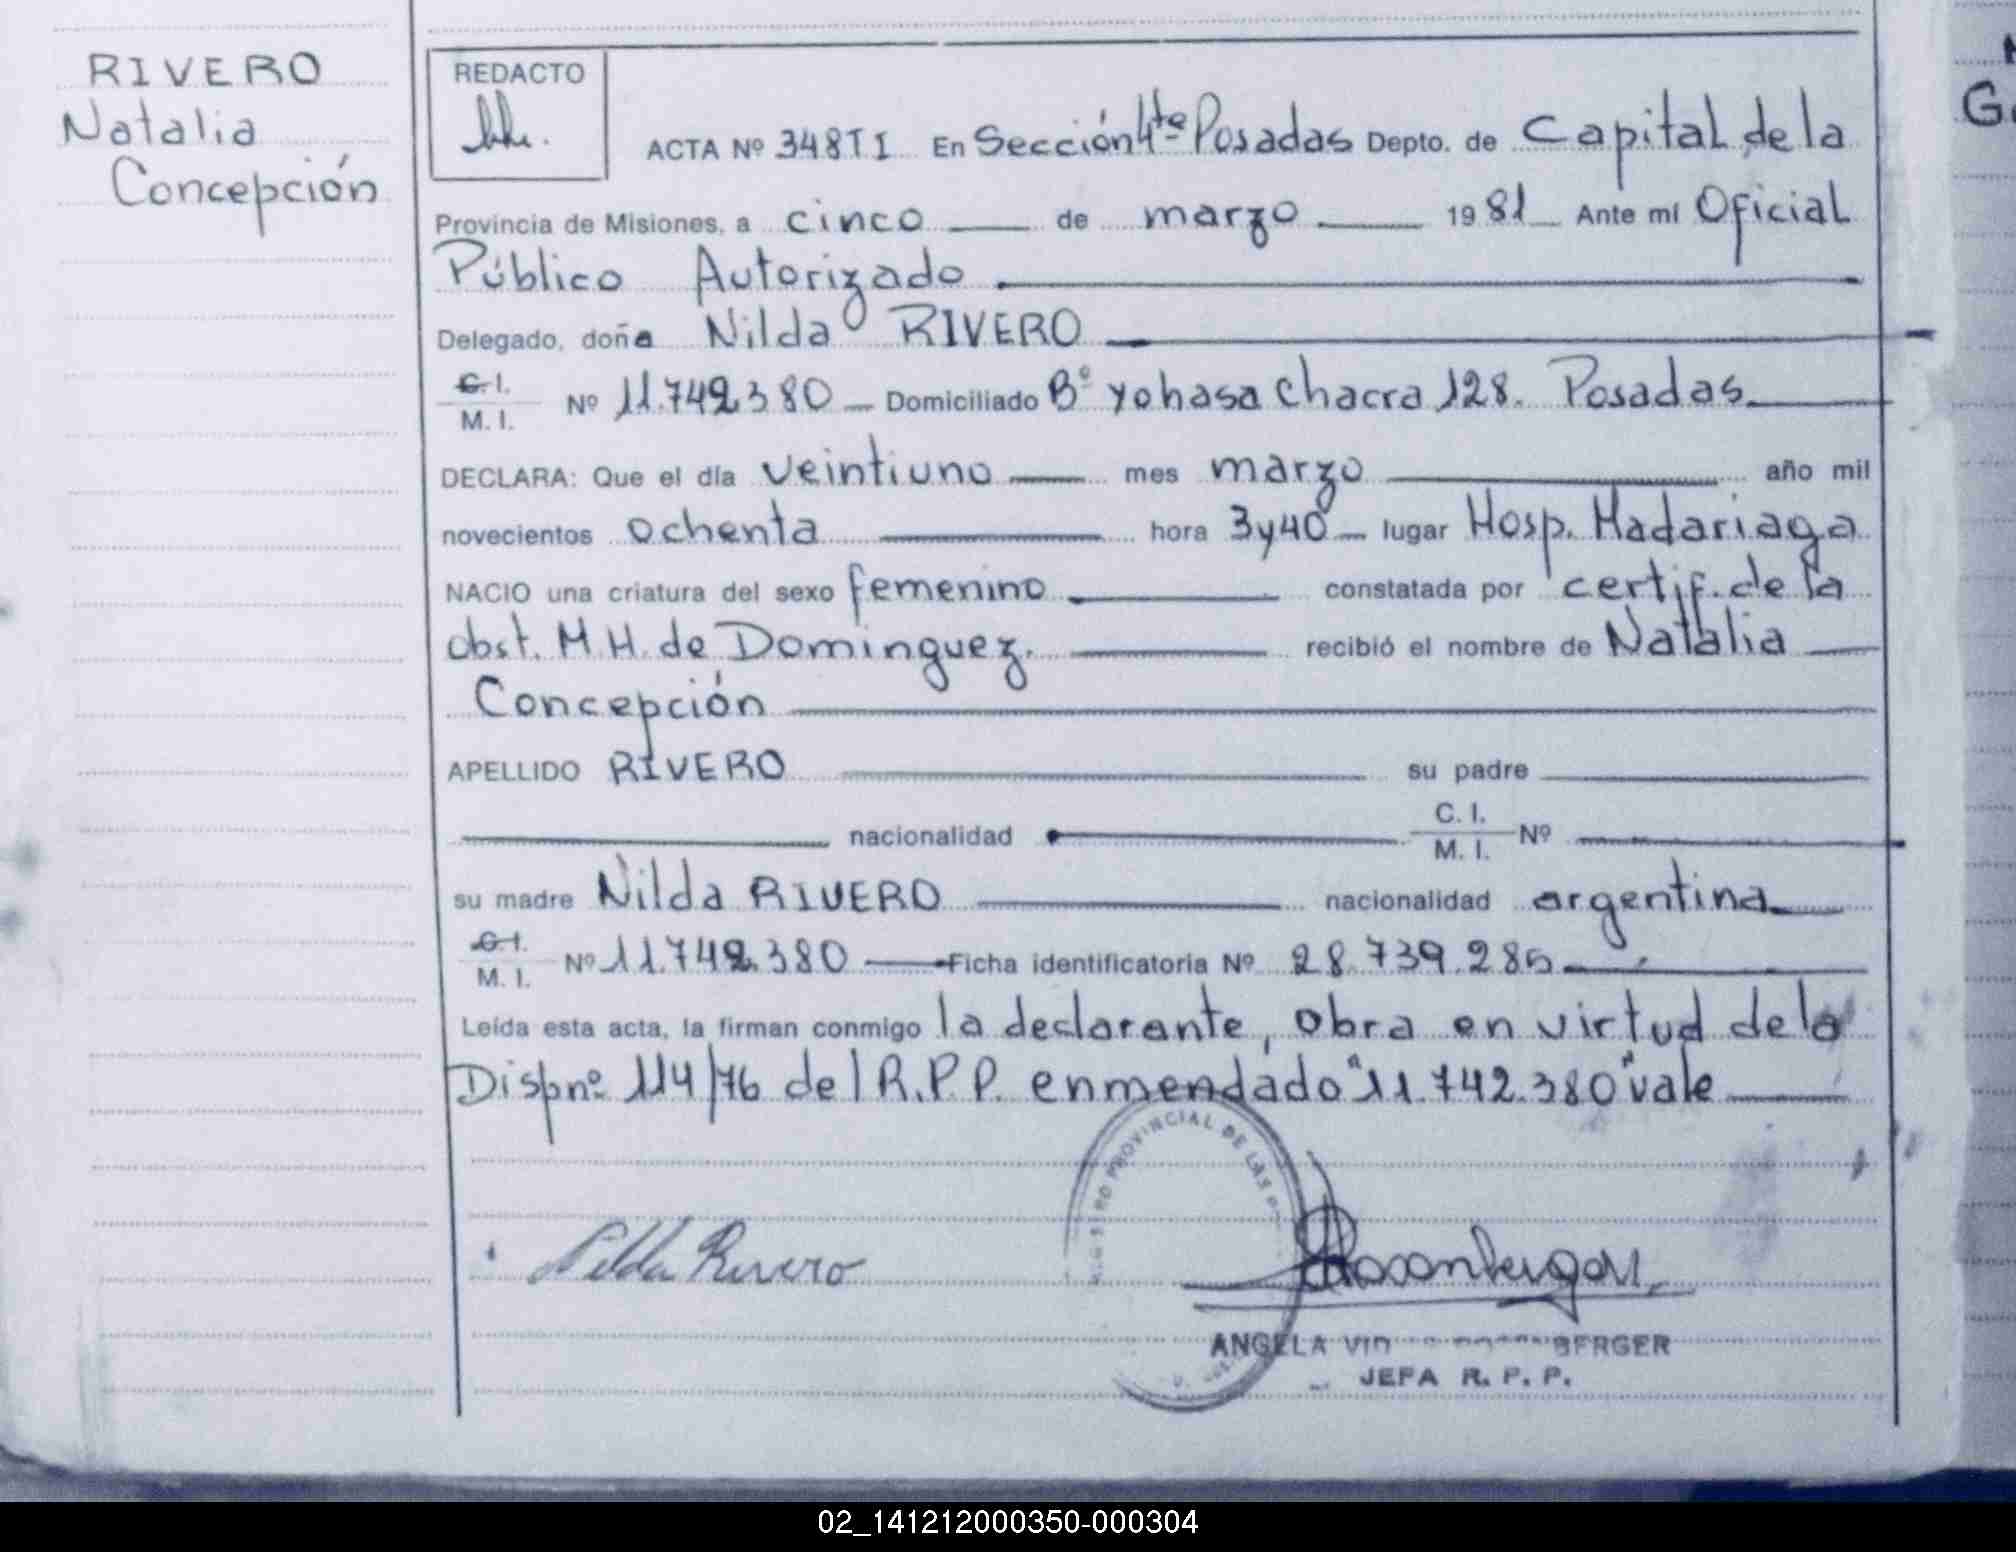 RIVERO
Natalia
Concepción
REDACTO
ACTA Nº 348 T I En Sección 4ta Posadas Depto. de Capital de la
Provincia de Misiones, a cinco de marzo 1981 Ante mí Oficial
Público Autorizado
Delegado, doña Nilda RIVERO
C. I.
M. I. Nº 11.742.380 Domiciliado Bº yohasa Chacra 128. Posadas
DECLARA: Que el día veintiuno mes marzo año mil
novecientos ochenta hora 3 y 40 lugar Hosp. Madariaga
NACIO una criatura del sexo femenino constatada por certif. de la
obst. M. H. de Dominguez. recibió el nombre de Natalia
Concepción
APELLIDO RIVERO su padre
nacionalidad C. I.
M. I. Nº
su madre Nilda RIVERO nacionalidad argentina
C. I.
M. I. Nº 11.742.380 Ficha identificatoria Nº 28.739.285
Leída esta acta, la firman conmigo la declarante, obra en virtud de la
Disp nº 114/76 del R.P.P. enmendado "11.742.380" vale
PROVINCIAL DE LAS P
Nilda Rivero
ANGELA BERGER
JEFA R. P. P.
02_141212000350-000304